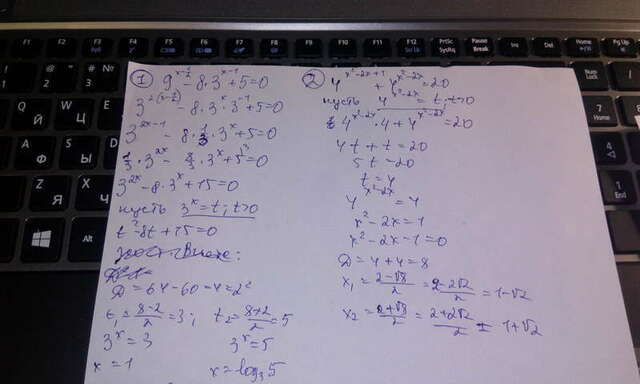 F1 F2 F3 F4 F5 F6 F7 F8 F9 F10 F11 F12 PrtSc SysRq Pause Break Ins Del Home Pg Up
Num Lock
Alt
① 9^(x-1/2) - 8·3^(x-1) + 5 = 0
3^(2(x-1/2)) - 8·3^x·3^(-1) + 5 = 0
3^(2x-1) - 8·1/3·3^x + 5 = 0
1/3·3^(2x) - 8/3·3^x + 5 = 0
3^(2x) - 8·3^x + 15 = 0
пусть 3^x = t; t>0
t² - 8t + 15 = 0
D = 64 - 60 = 4 = 2²
t₁ = (8-2)/2 = 3; t₂ = (8+2)/2 = 5
3^x = 3 3^x = 5
x = 1 x = log₃5
② 4^(x²-2x+1) + 4^(x²-2x) = 20
пусть 4^(x²-2x) = t; t>0
4^(x²-2x)·4 + 4^(x²-2x) = 20
4t + t = 20
5t = 20
t = 4
4^(x²-2x) = 4
x² - 2x = 1
x² - 2x - 1 = 0
D = 4 + 4 = 8
x₁ = (2-√8)/2 = (2-2√2)/2 = 1-√2
x₂ = (2+√8)/2 = (2+2√2)/2 = 1+√2